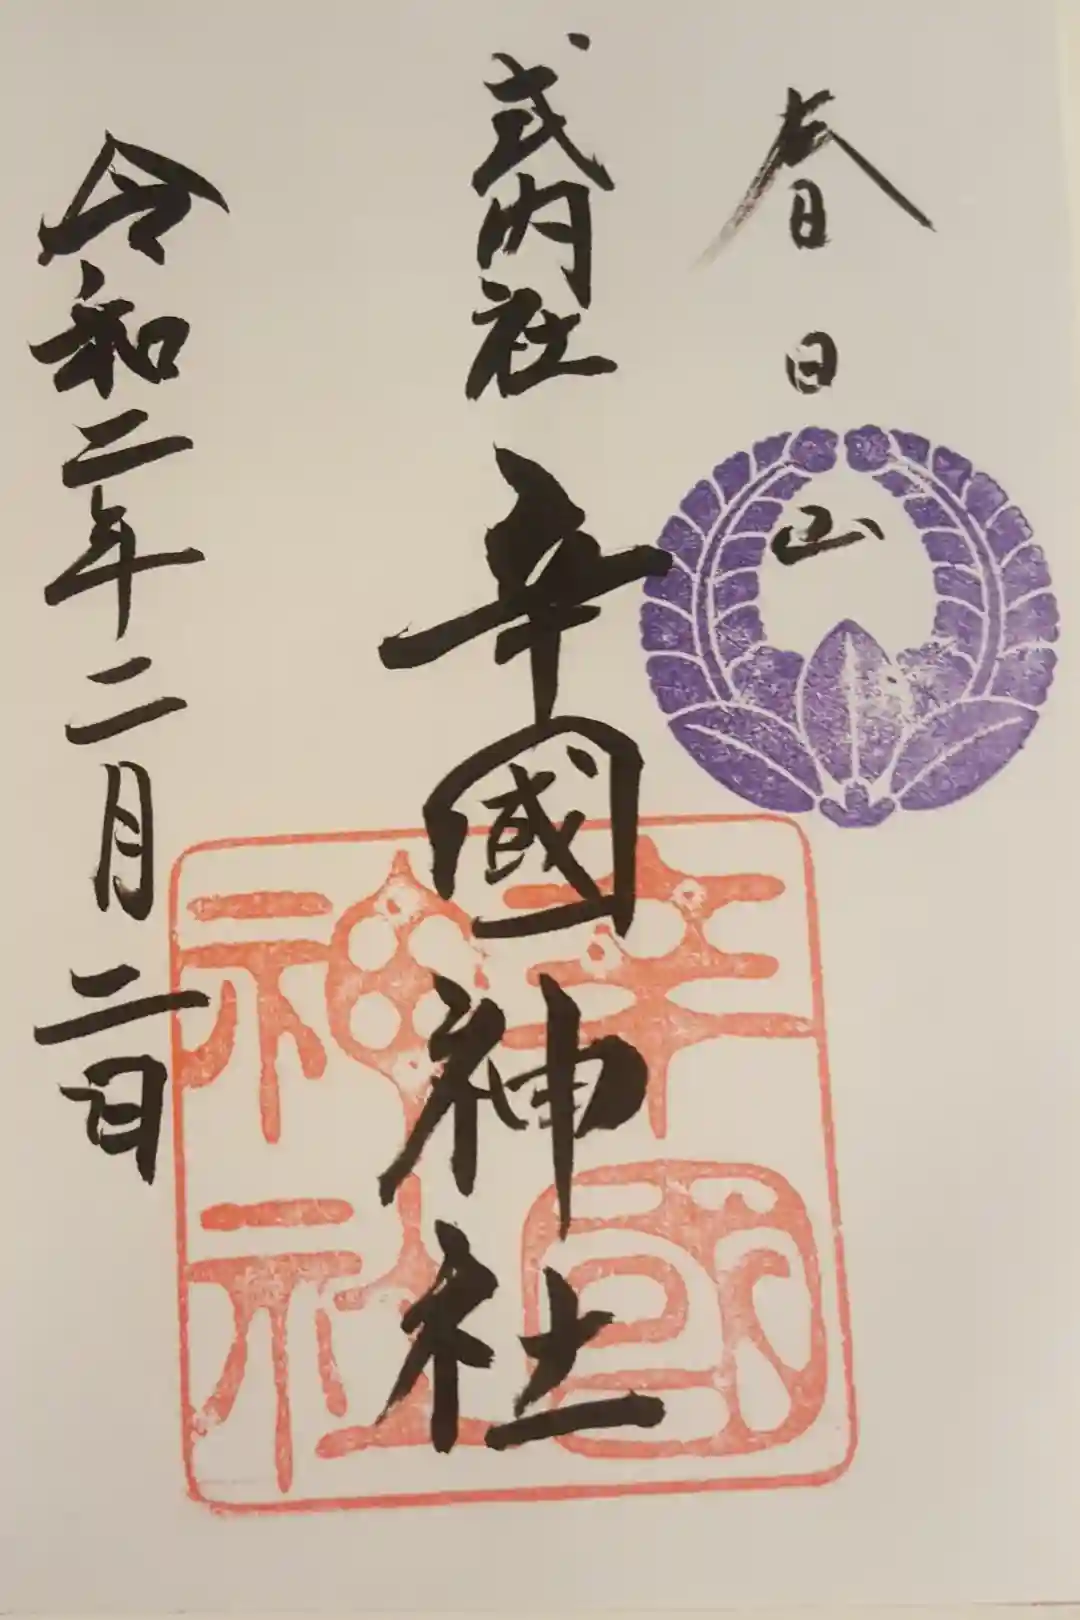 春日山
式内社 辛國神社
令和二年二月二日
辛國神社